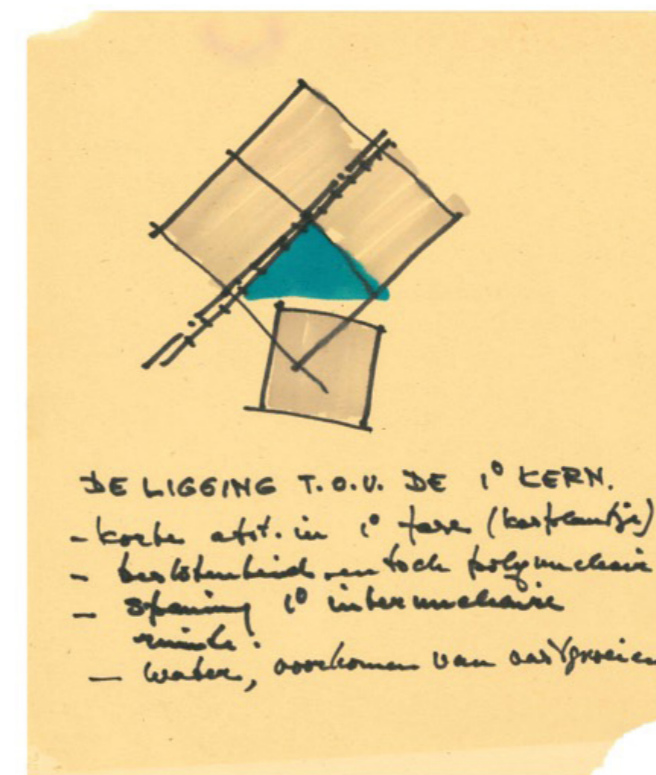 DE LIGGING T.O.V. DE 1° KERN.
- korte afst. in 1° fase (kasplantje)
- beslotenheid en toch polynucleair
- spanning 1° internucleaire
ruimte.
- water, voorkomen van aan groeien